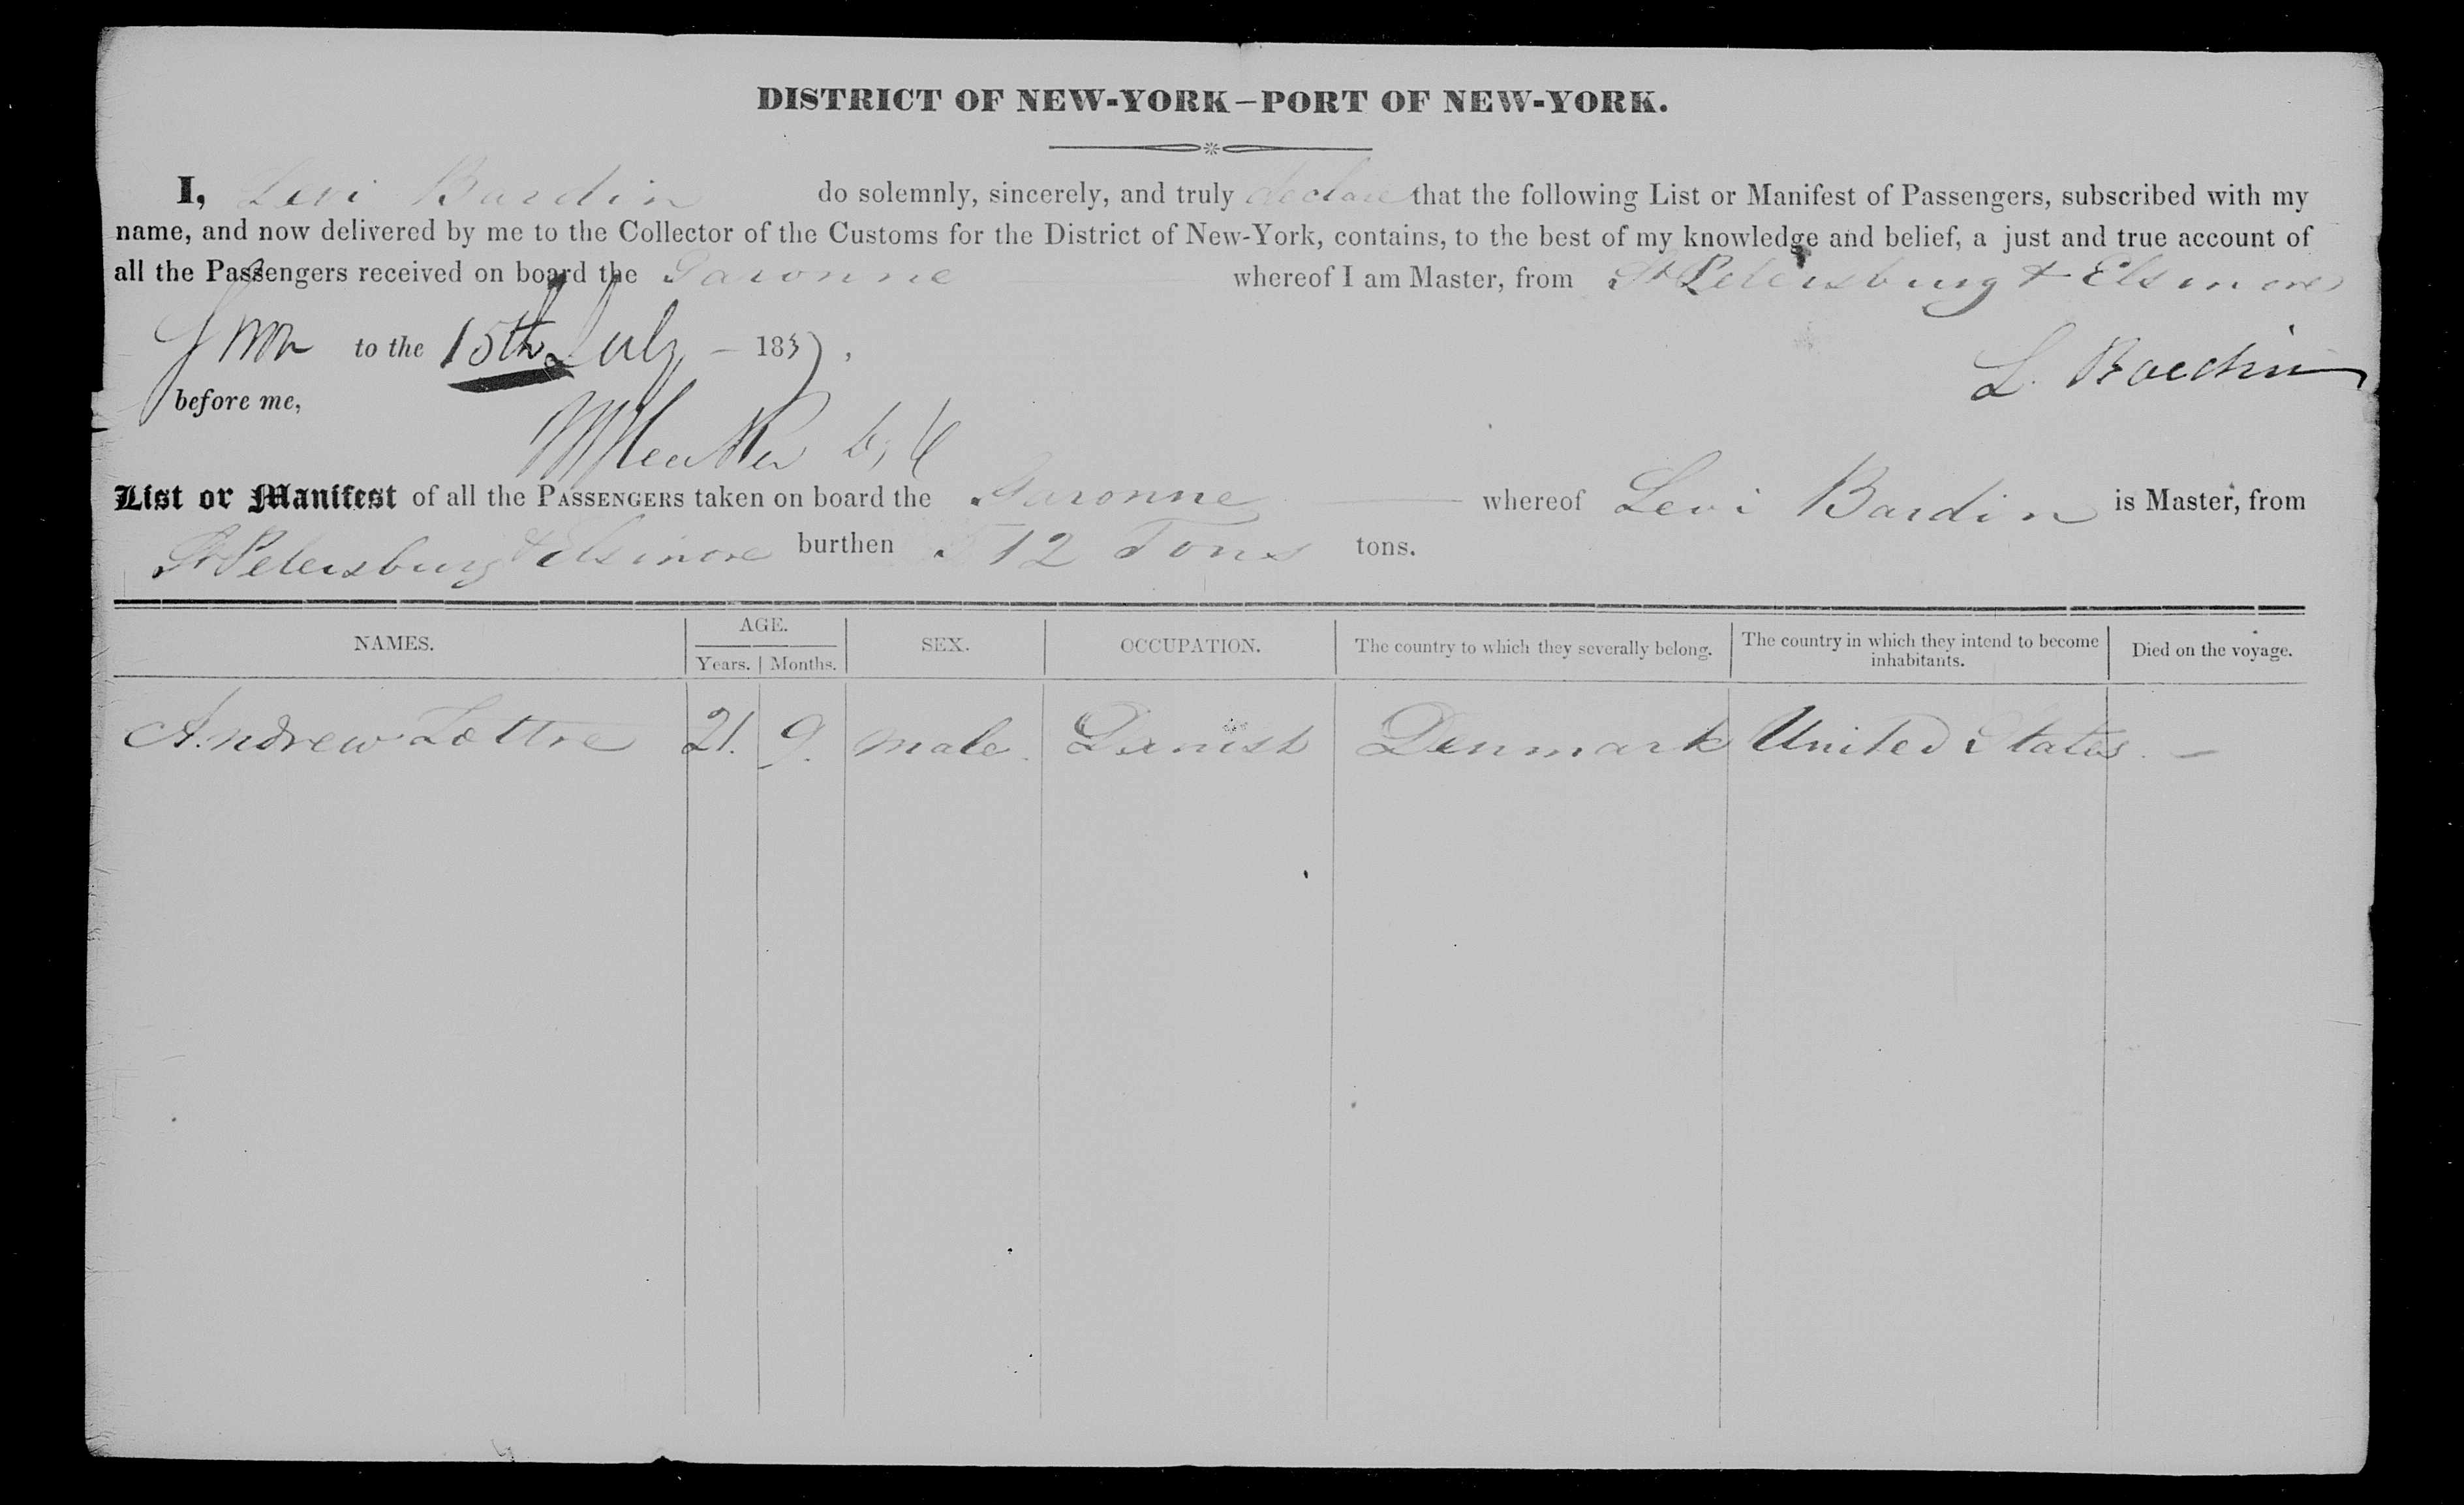 DISTRICT OF NEW-YORK—PORT OF NEW-YORK.
I, Levi Bardin do solemnly, sincerely, and truly declare that the following List or Manifest of Passengers, subscribed with my
name, and now delivered by me to the Collector of the Customs for the District of New-York, contains, to the best of my knowledge and belief, a just and true account of
all the Passengers received on board the Garonne whereof I am Master, from St Petersburg & Elsinore
to the 15th July – 1837,
L. Bardin
before me,
List or Manifest of all the PASSENGERS taken on board the Garonne whereof Levi Bardin is Master, from
St Petersburg & Elsinore burthen 512 Tons tons.
NAMES. AGE. Years. Months. SEX. OCCUPATION. The country to which they severally belong. The country in which they intend to become inhabitants. Died on the voyage.
Andrew Lottre 21. 9. male. Danish Denmark United States. –